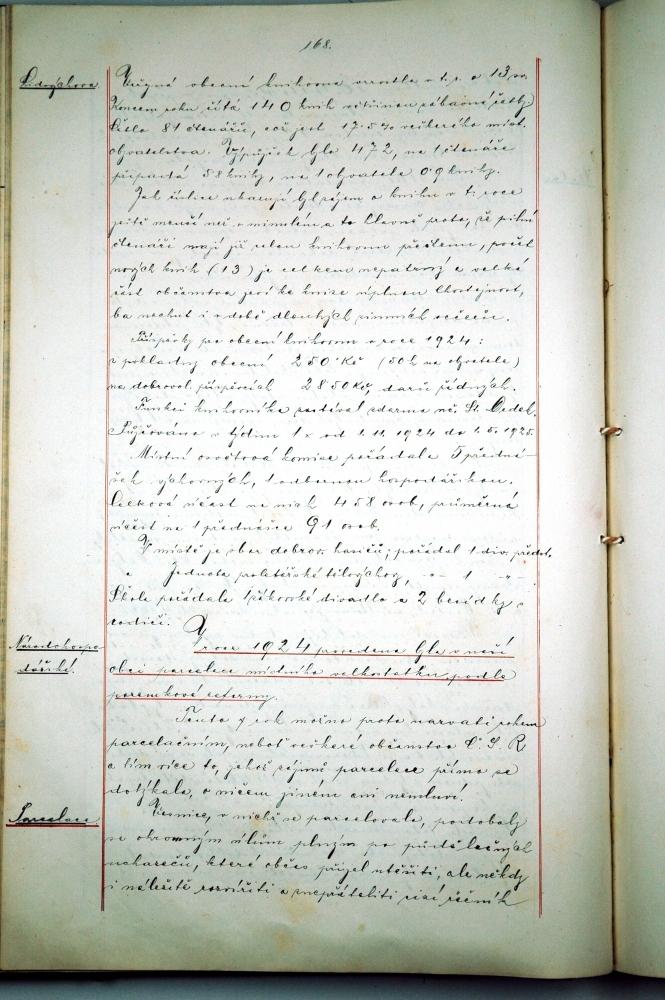 168.
Lidových.
Veřejná obecní knihovna vzrostla v t. r. o 13 sv.
Koncem roku čítá 140 knih většinou zábavné četby.
Četlo 81 čtenářů, což jest 17·5% veškerého míst.
obyvatelstva. Výpůjček bylo 472, na 1 čtenáře
připadá 5·8 knihy, na 1 obyvatele 0·9 knihy.
Jak číslice ukazují byl zájem o knihu v t. roce
ještě menší než v minulém a to hlavně proto, že pilní
čtenáři mají již celou knihovnu přečtenu, počet
nových knih (13) je celkem nepatrný a velká
část občanstva jeví ke knize úplnou lhostejnost,
ba nechuť i v době dlouhých zimních večerů.
Příspěvky pro obecní knihovnu v roce 1924:
z pokladny obecní 250 Kč (50 h na obyvatele)
na dobrovol. příspěvcích 28·50 Kč, darů žádných.
Funkci knihovníka zastával zdarma uč. St. Dedek.
Půjčováno v týdnu 1x od 1. 11. 1924 do 1. 5. 1925.
Místní osvětová komise pořádala 5 předná-
šek výchovných, 1 odbornou hospodářskou.
Celková účast na nich 458 osob, průměrná
účast na 1 přednášce 91 osob.
V místě je sbor dobrov. hasičů; pořádal 1 div. předst.
" Jednota proletářské tělovýchovy, -"- 1 -"-
Škola pořádala 1 žákovské divadlo a 2 besídky s
rodiči.
Národohospo-
dářské.
V roce 1924 provedena byla v naší
obci parcelace místního velkostatku podle
pozemkové reformy.
Tento rok možno proto nazvati rokem
parcelačním, neboť veškeré občanstvo Č. S. R.
a tím více to, jehož zájmů parcelace přímo se
dotýkala, o ničem jiném ani nemluví.
Parcelace
Vesnice, v nichž se parcelovalo, podobaly
se ohromným úlům plným po předělečných
uchazečů, které občas přijel utěšiti, ale někdy
i náležitě rozvířiti a znepřáteliti řečník